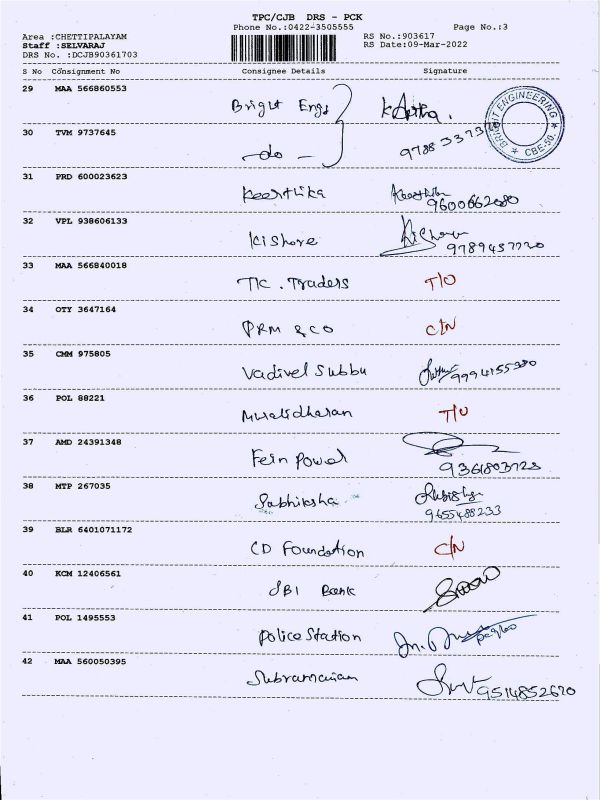 TPC/CJB DRS - PCK
Phone No.:0422-3505555 Page No.:3
Area :CHETTIPALAYAM RS No.:903617
Staff :SELVARAJ RS Date:09-Mar-2022
DRS No. :DCJB90361703
S No Consignment No Consignee Details Signature
29 MAA 566860553 Bright Engg
BRIGHT ENGINEERING * CBE-50. *
30 TVM 9737645 -do-
31 PRD 600023623 Keerthika Keerthika
9600662080
32 VPL 938606133 Kishore Kishore
9789457720
33 MAA 566840018 TK. Traders T/O
34 OTY 3647164 PRM & CO C/N
35 CMM 975805 Vadivel Subbu
36 POL 88221 Muralidharan T/O
37 AMD 24391348 Fern Power
9361803723
38 MTP 267035 Sabhiksha
9655488233
39 BLR 6401071172 CD Foundation C/N
40 KCM 12406561 SBI Bank
41 POL 1495553 Police Station
42 MAA 560050395 Subramanian
9514852670